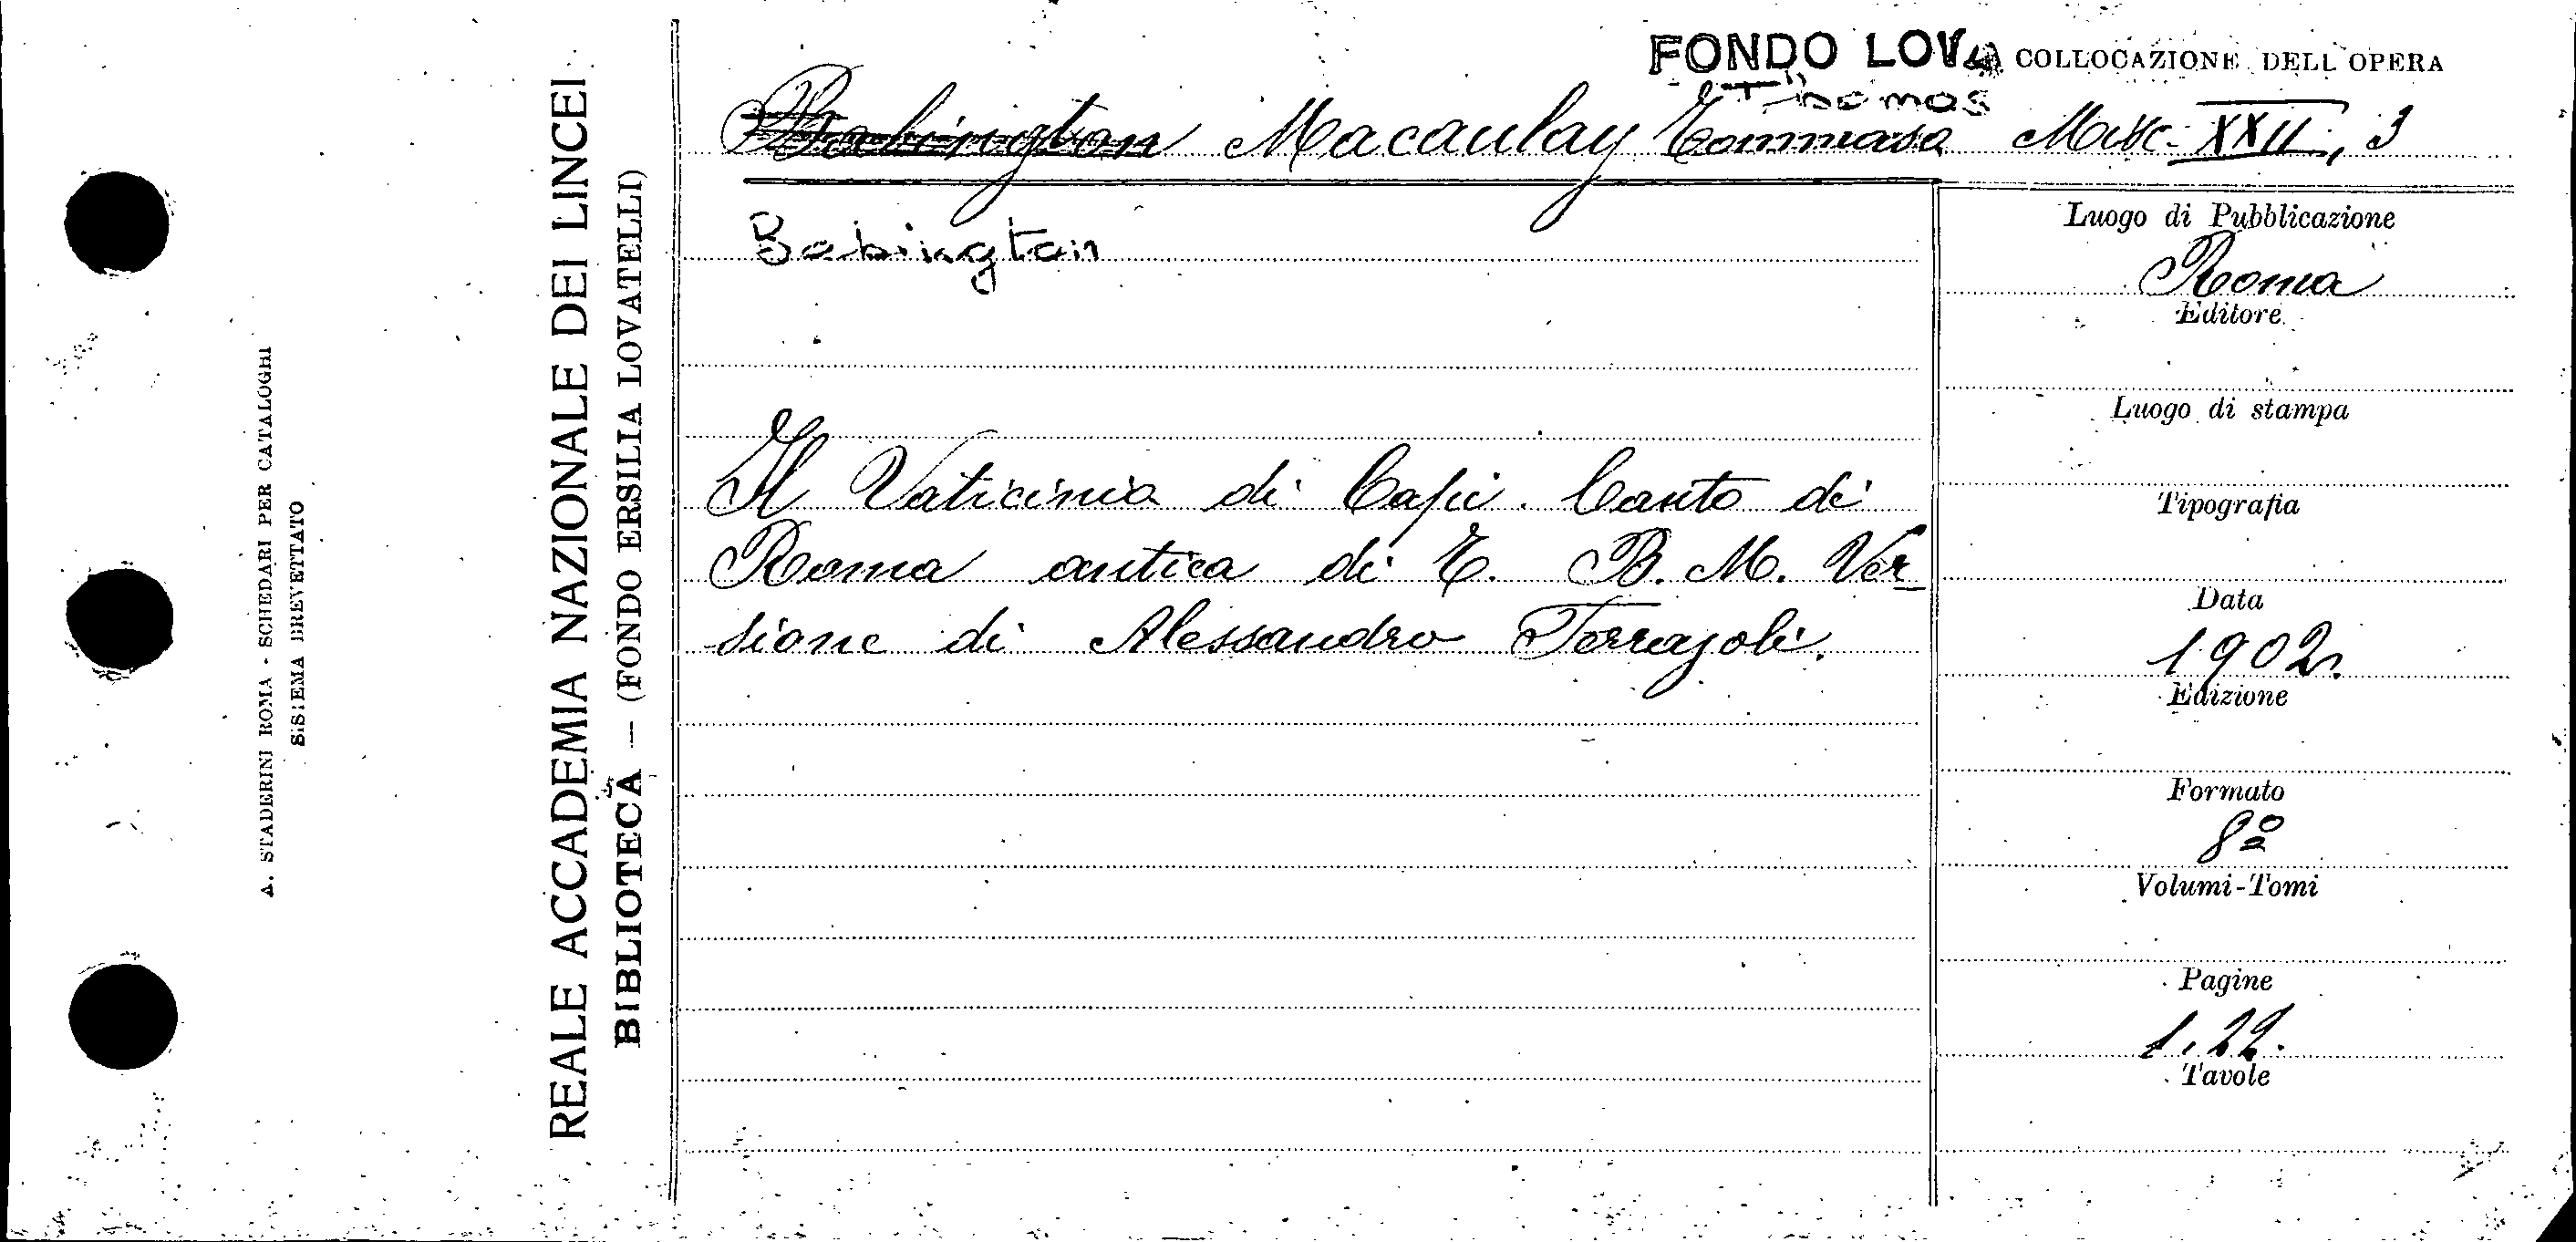 FONDO LOVA COLLOCAZIONE DELL'OPERA
Thomas
Babington Macaulay Tommaso Misc. XXII, 3
Babington
Il Vaticinio di Capi. Canto di
Roma antica di T. B. M. Ver-
sione di Alessandro Ferrajoli.
Luogo di Pubblicazione
Roma
Editore
Luogo di stampa
Tipografia
Data
1902.
Edizione
Formato
8º
Volumi-Tomi
Pagine
1.22.
Tavole
REALE ACCADEMIA NAZIONALE DEI LINCEI
BIBLIOTECA — (FONDO ERSILIA LOVATELLI)
A. STADERINI ROMA - SCHEDARI PER CATALOGHI
SISTEMA BREVETTATO